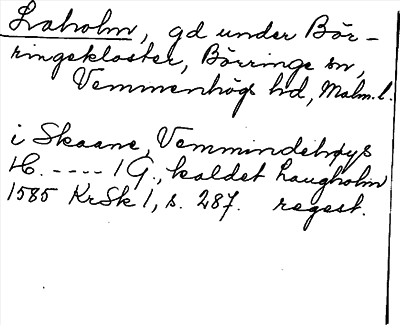 Laholm, gd under Bör-
ringekloster, Börringe sn,
Vemmenhögs hd, Malm. l.
i Skaane, Vemmindehøys
H. ---- 1 G., kaldet Laugholm
1585 KrSk 1, s. 287. regest.